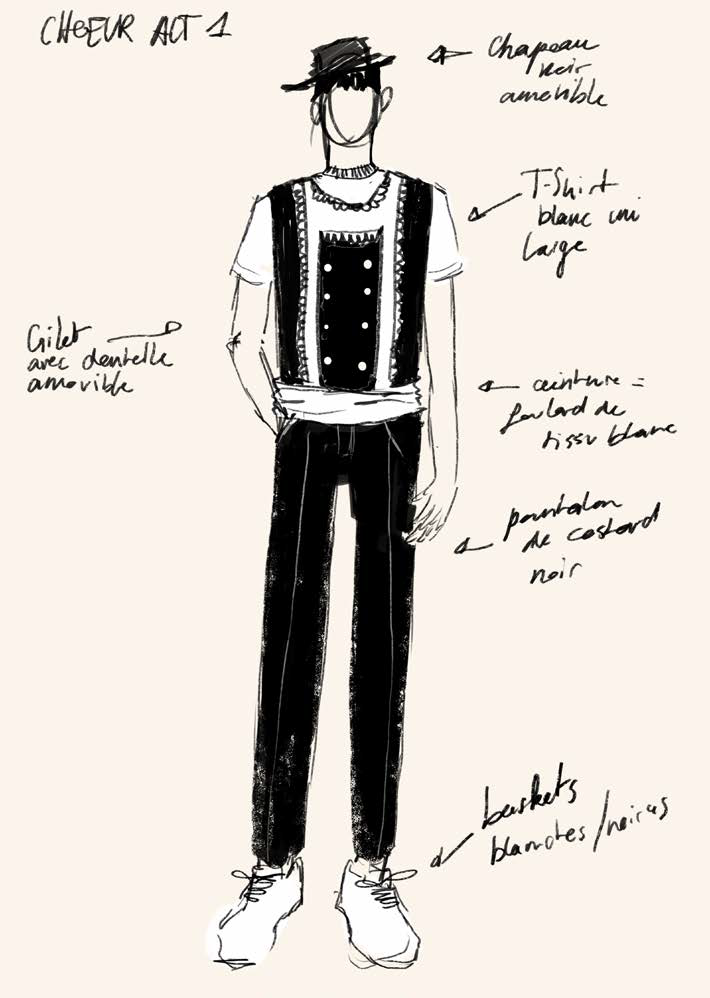 CHŒUR ACT 1
Chapeau
noir
amovible
T-Shirt
blanc uni
large
Gilet
avec dentelle
amovible
ceinture =
foulard de
tissu blanc
pantalon
de costard
noir
baskets
blanches/noires